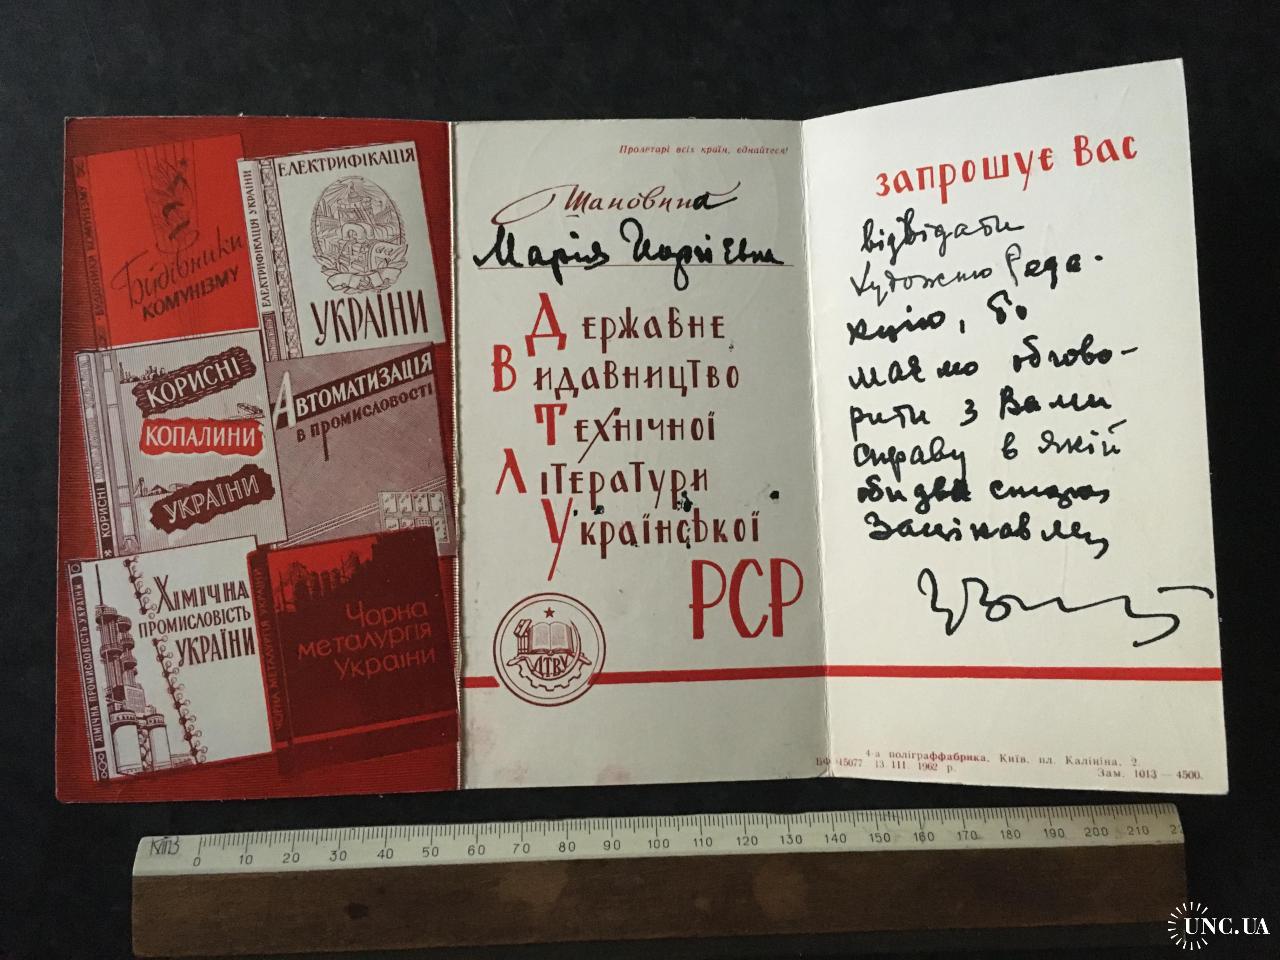 Будівники
комунізму
БУДІВНИКИ КОМУНІЗМУ
ЕЛЕКТРИФІКАЦІЯ
УКРАЇНИ
ЕЛЕКТРИФІКАЦІЯ УКРАЇНИ
КОРИСНІ
КОПАЛИНИ
УКРАЇНИ
АВТОМАТИЗАЦІЯ
в промисловості
ХІМІЧНА
ПРОМИСЛОВІСТЬ
УКРАЇНИ
ХІМІЧНА ПРОМИСЛОВІСТЬ УКРАЇНИ
Чорна
металургія
України
ЧОРНА МЕТАЛУРГІЯ УКРАЇНИ
Пролетарі всіх країн, єднайтеся!
Шановна
Марія
Державне
Видавництво
Технічної
Літератури
Української
РСР
ДТВУ
запрошує Вас
відвідати
художню реда-
кцію, бо
маємо обгово-
рити з Вами
справу в якій
обидві сторони
4-а поліграффабрика. Київ. пл. Калініна, 2.
БФ 15077 13 III. 1962 р.
Зам. 1013 — 4500.
0 10 20 30 40 50 60 70 80 90 100 110 120 130 140 150 160 170 180 190 200 210
UNC.UA